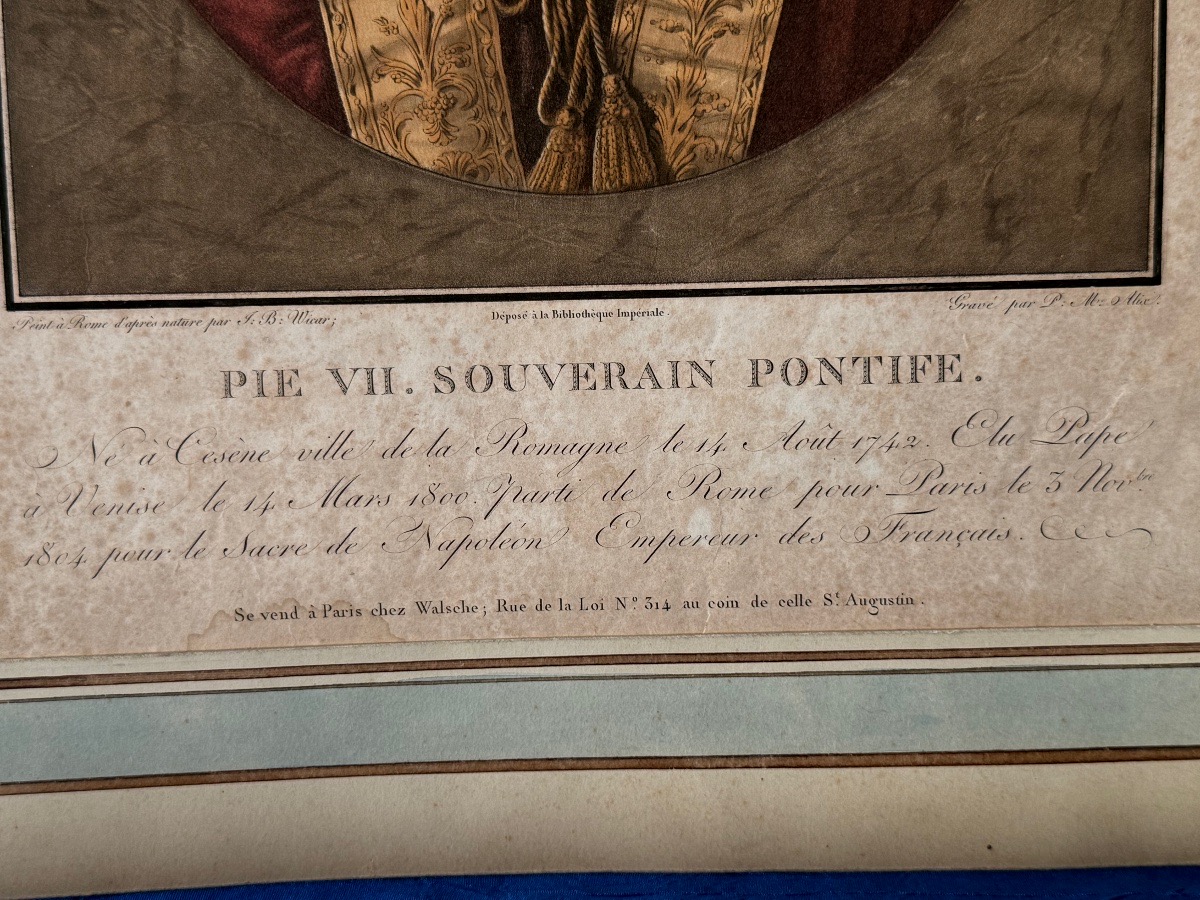 Peint à Rome d'après nature par J: B: Wicar;
Déposé à la Bibliothèque Impériale.
Gravé par P: M: Alix.
PIE VII. SOUVERAIN PONTIFE.
Né à Cesène ville de la Romagne le 14 Août 1742. Elu Pape
à Venise le 14 Mars 1800. Parti de Rome pour Paris le 3 Nov.bre
1804 pour le Sacre de Napoléon Empereur des Français.
Se vend à Paris chez Walsche; Rue de la Loi N.º 314 au coin de celle S.t Augustin.